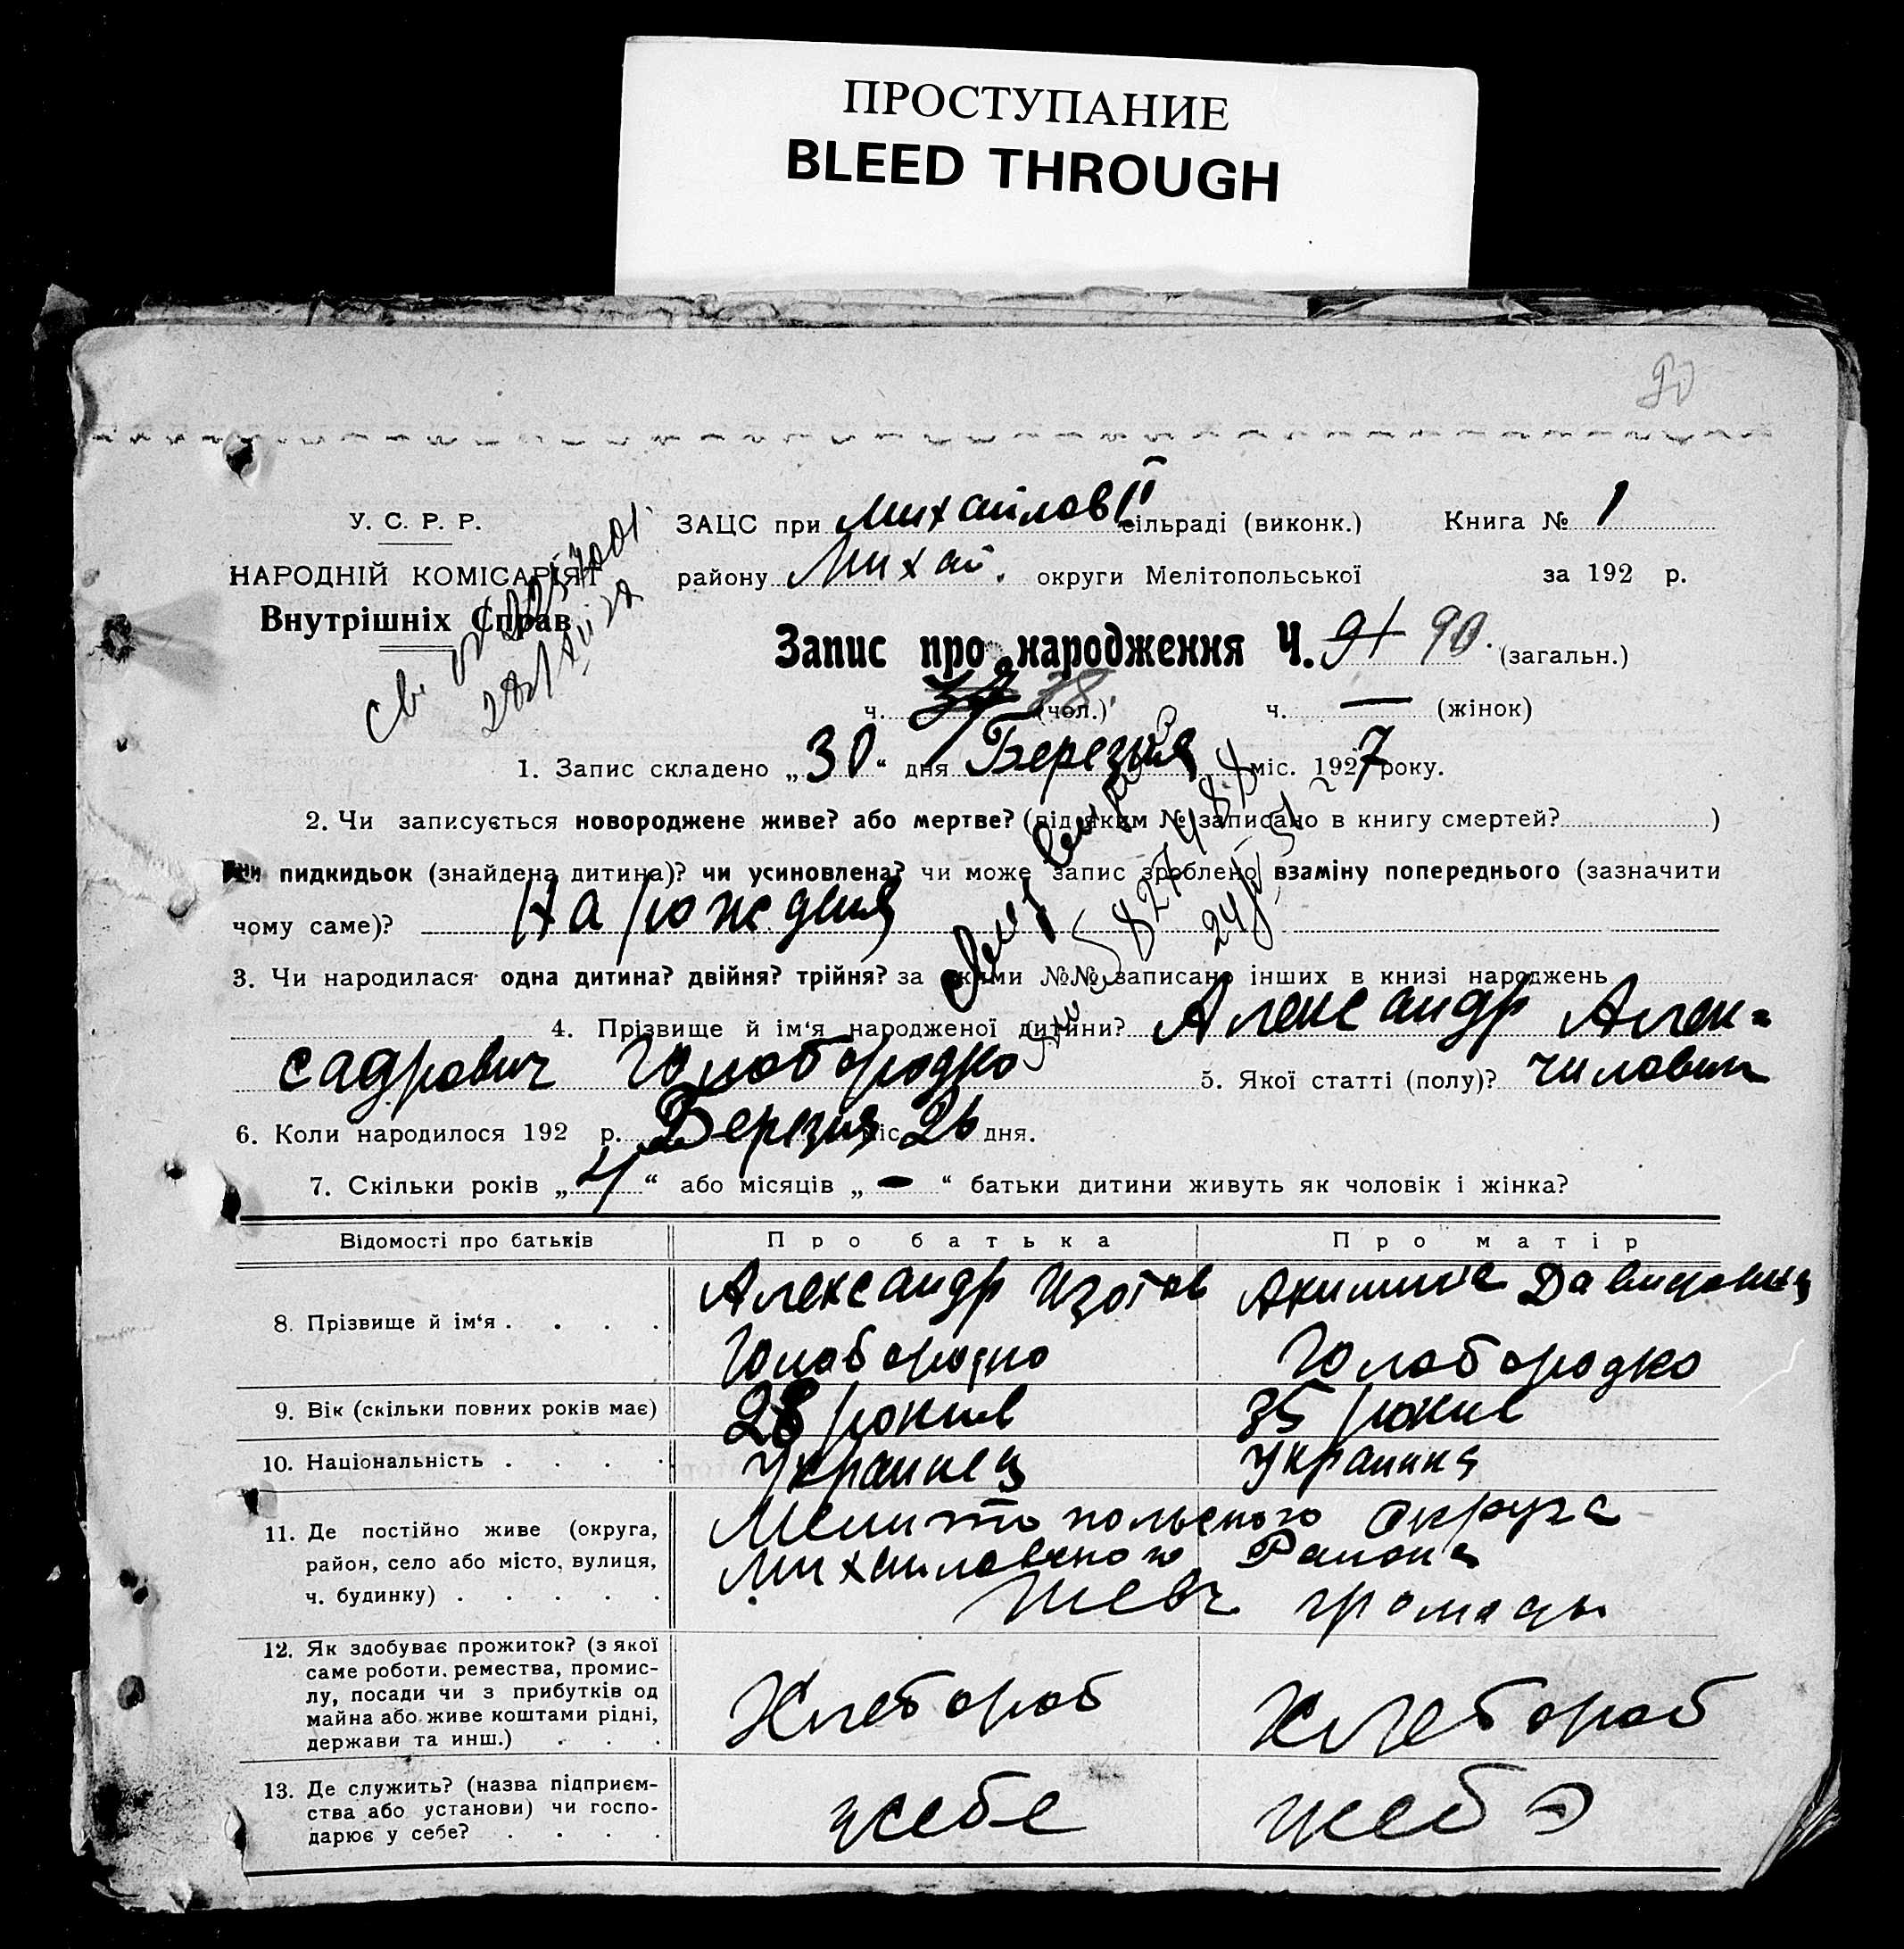 ПРОСТУПАНИЕ
BLEED THROUGH
90
У. С. Р. Р.
НАРОДНІЙ КОМІСАРІЯТ
Внутрішніх Справ
ЗАЦС при Михайлов II сільраді (виконк.) Книга № 1
району Михай. округи Мелітопольської за 192 р.
Запис про народження Ч. 91 90. (загальн.)
ч. 38. (чол.) ч. — (жінок)
1. Запис складено „30“ дня Березня міс. 1927 року.
2. Чи записується новороджене живе? або мертве? (під яким № записано в книгу смертей? )
чи пидкидьок (знайдена дитина)? чи усиновлена? чи може запис зроблено взаміну попереднього (зазначити
чому саме)? Нарождния
3. Чи народилася одна дитина? двійня? трійня? за якими №№ записано інших в книзі народжень
4. Прізвище й ім‘я народженої дитини? Александр Алек-
садрович Голобородко 5. Якої статті (полу)? чиловик
6. Коли народилося 192 р. Березня міс. 26 дня.
7. Скільки років „4“ або місяців „—“ батьки дитини живуть як чоловік і жінка?
Відомості про батьків Про батька Про матір
8. Прізвище й ім‘я . . . . Александр Изотов Акилина Давидовна
Голобородко Голобородко
9. Вік (скільки повних років має) 28 рокив 35 рокив
10. Національність . . . . Украинец Украинка
11. Де постійно живе (округа, Мелитопольского округа
район, село або місто, вулиця, Михайловского Района
ч. будинку) . . . . . Шевч громады
12. Як здобуває прожиток? (з якої
саме роботи, ремества, промис-
лу, посади чи з прибутків од Хлебороб Хлебороб
майна або живе коштами рідні,
держави та инш.) . . .
13. Де служить? (назва підприєм-
ства або установи) чи госпо- усебе усебэ
дарює у себе? . . . .